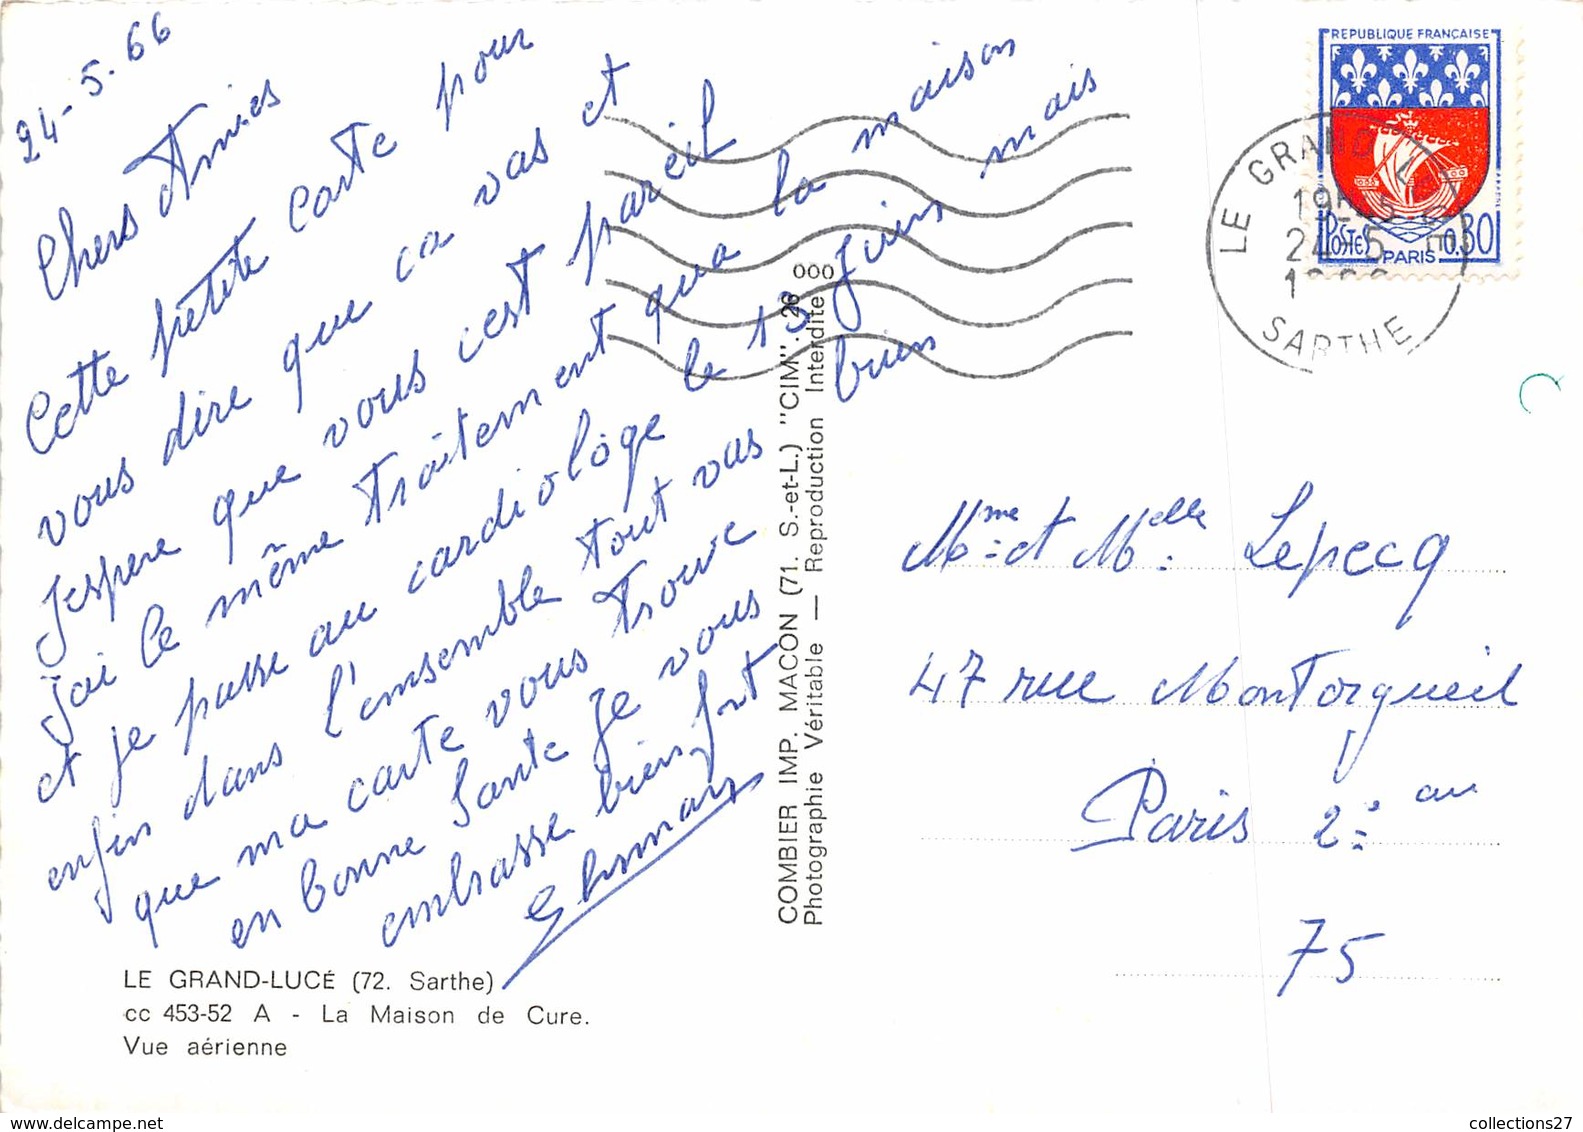 24-5.66
Chers Amies
Cette petite carte pour
vous dire que ca vas et
Jespere que vous cest pareil
jai le même traitement qua la maison
et je passe au cardiologe le 13 juin mais
enfin dans l'ensemble tout vas bien
que ma carte vous trouve
en bonne Sante Je vous
embrasse bien fort
LE GRAND-LUCÉ (72. Sarthe)
cc 453-52 A - La Maison de Cure.
Vue aérienne
COMBIER IMP. MACON (71. S.-et-L.) "CIM". 26
Photographie Véritable — Reproduction Interdite
000
REPUBLIQUE FRANÇAISE
POSTES
0.30
PARIS
LE GRAND LUCE
19H 15
24-5
SARTHE
Mme et Melle Lepecq
47 rue Montorgueil
Paris 2:
75
collections27